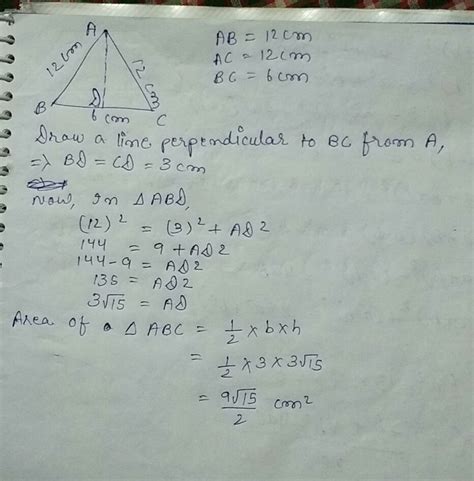 A
12 cm
12 cm
B
D
C
6 cm
AB = 12 cm
AC = 12 cm
BC = 6 cm
Draw a line perpendicular to BC from A,
=> BD = CD = 3 cm
Now, In △ABD,
(12)² = (3)² + AD2
144 = 9 + AD2
144 - 9 = AD2
135 = AD2
3√15 = AD
Area of a △ ABC = 1/2 × b × h
= 1/2 × 3 × 3√15
= 9√15/2 cm²